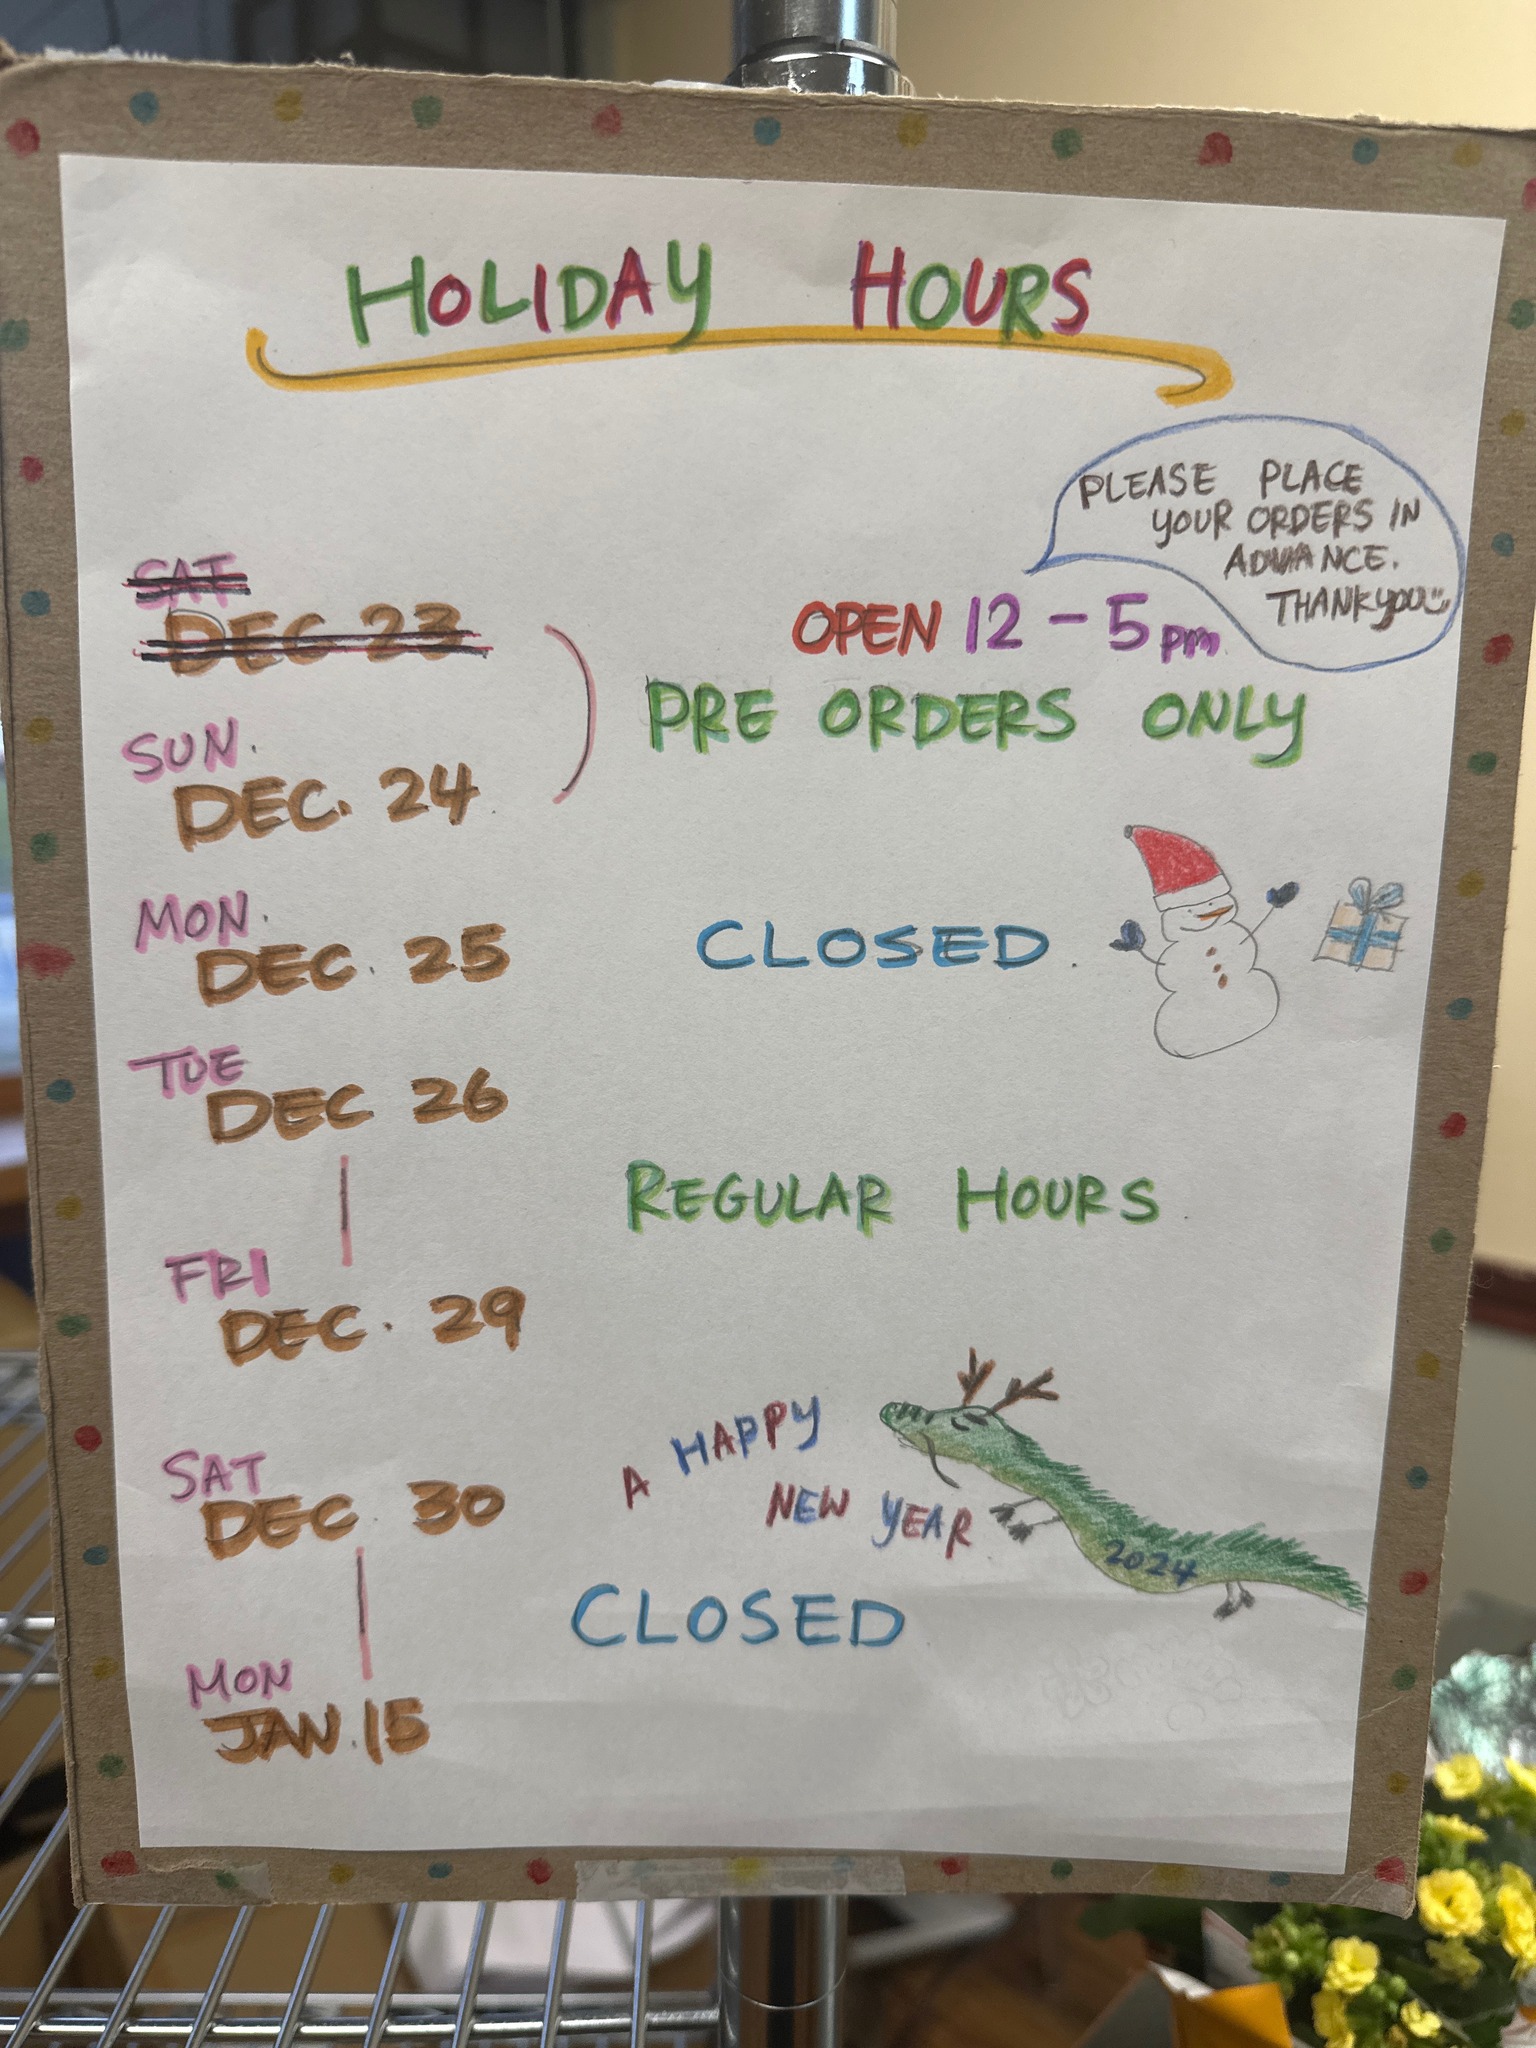 HOLIDAY HOURS
PLEASE PLACE
YOUR ORDERS IN
ADVANCE.
THANK YOU
SAT
DEC 23
OPEN 12 - 5 pm
PRE ORDERS ONLY
SUN.
DEC. 24
MON.
DEC. 25
CLOSED.
TUE
DEC 26
REGULAR HOURS
FRI
DEC. 29
SAT
DEC 30
A HAPPY
NEW YEAR
2024
CLOSED
MON
JAN. 15